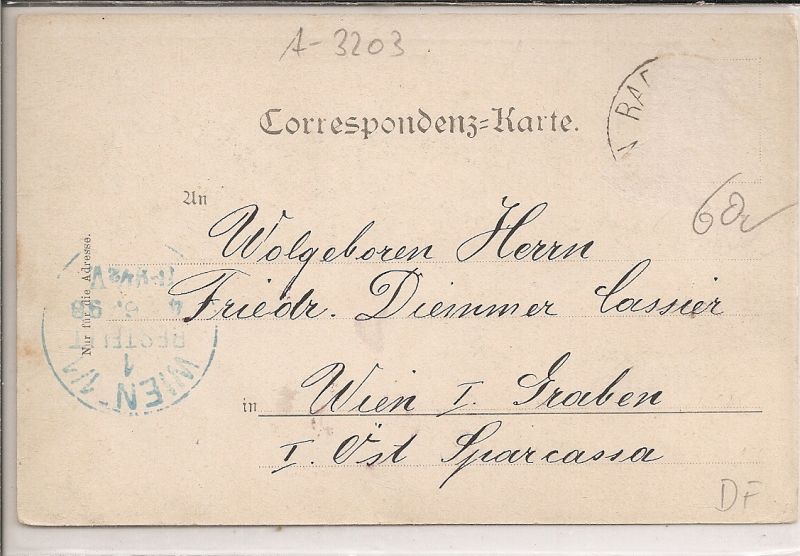 A-3203
Correspondenz=Karte.
RA
An
Wolgeboren Herrn
Friedr. Diemmer Cassier
in Wien I. Graben
I. Öst Sparcassa
Nur für die Adresse.
WIEN 1/1
1
BESTELLT
DF